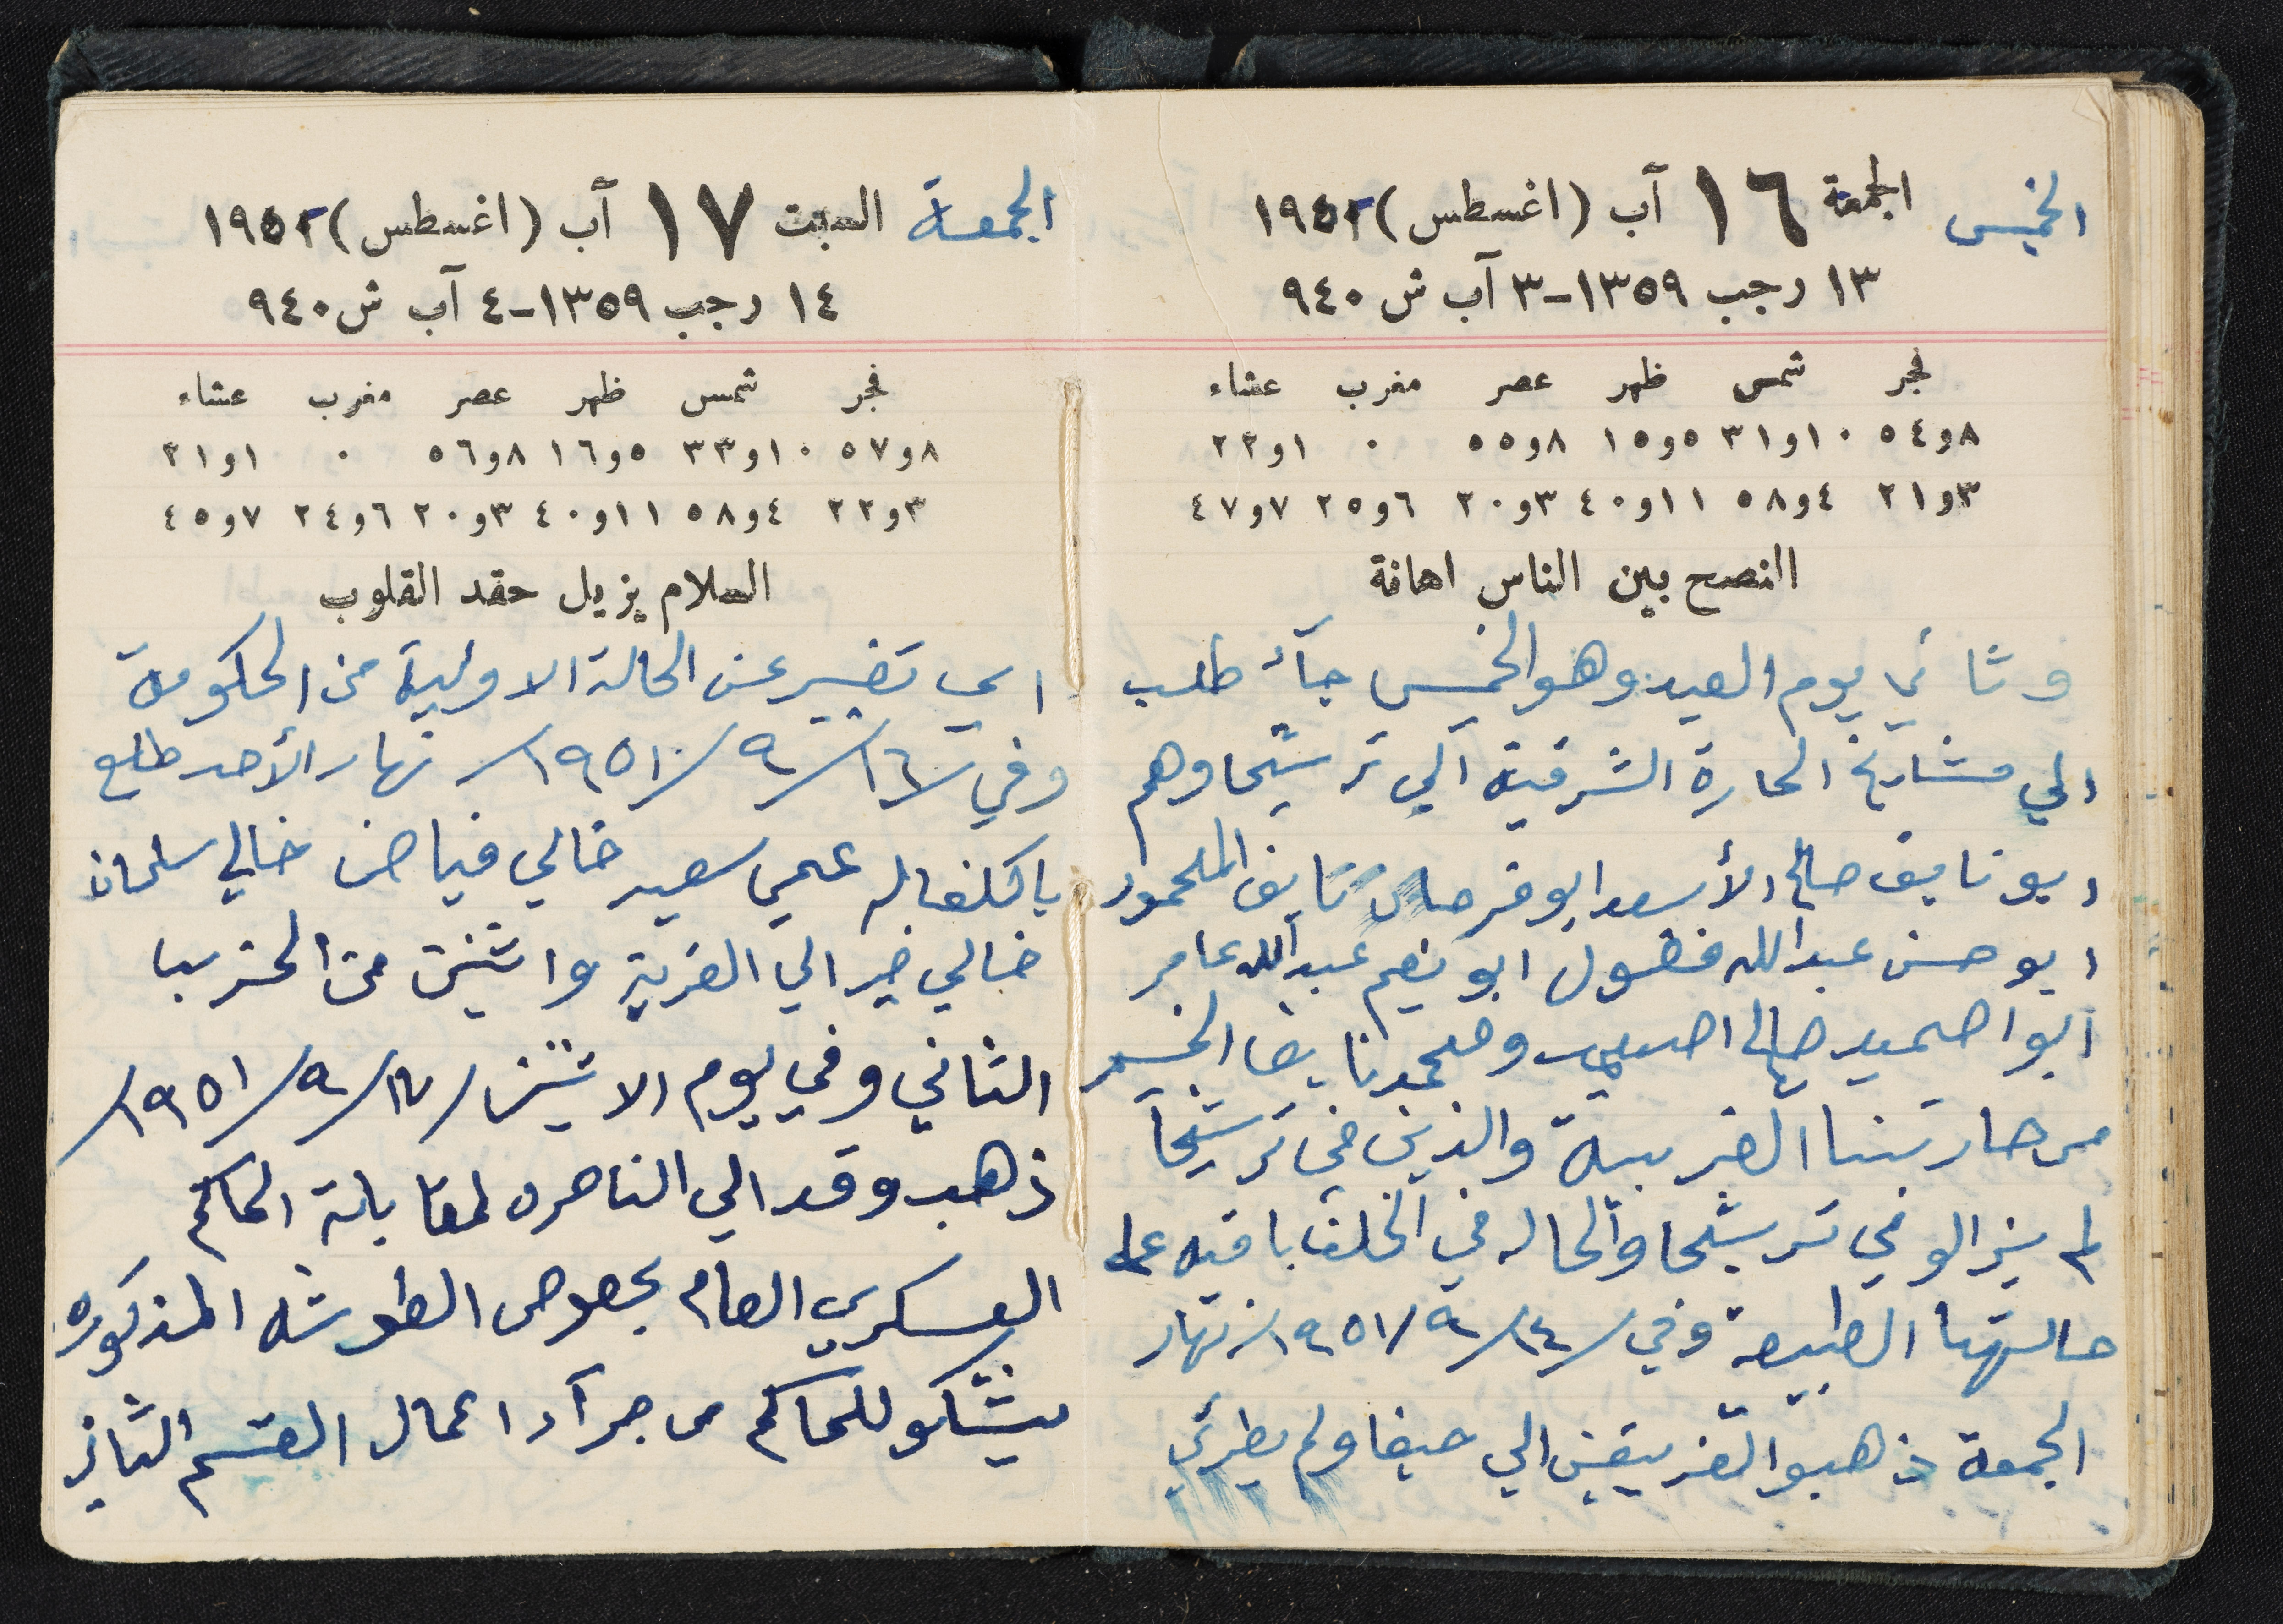 الخميس الجمعة ١٦ آب (اغسطس) ١٩٥٢
١٣ رجب ١٣٥٩-٣ آب ش ٩٤٠
فجر شمس ظهر عصر مغرب عشاء
٨و٥٤ ١٠و٣١ ٥و١٥ ٨و٥٥ ٠ ١و٢٢
٣و٢١ ٤و٥٨ ١١و٤٠ ٣و٢٠ ٦و٢٥ ٧و٤٧
النصح بين الناس اهانة
وثاني يوم العيد وهو الخميس جآء طلب
الي مشايخ الحارة الشرقية الي ترشيحا وهم
ابو نايف صالح الأسعد ابو فرحان نايف المحمود
ابو حسن عبدالله فضول ابو نعيم عبدالله عامر
ابو احميد صالح ومحمد نايف الخير
من حارتنا الغربية والذين في ترشيحا
لم يزالو في ترشيحا والحاله في الخلف باقيه على
حالتها الطبيعة وفي ١٤/٩/١٩٥١ نهار
الجمعة ذهبو الفريقين الي حيفا ولم يطرئي
الجمعة السبت ١٧ آب (اغسطس) ١٩٥٢
١٤ رجب ١٣٥٩-٤ آب ش ٩٤٠
فجر شمس ظهر عصر مغرب عشاء
٨و٥٧ ١٠و٣٣ ٥و١٦ ٨و٥٦ ٠ ١و٢١
٣و٢٢ ٤و٥٨ ١١و٤٠ ٣و٢٠ ٦و٢٤ ٧و٤٥
السلام يزيل حقد القلوب
اي تغيير عن الحالة الاولية من الحكومة
وفي ١٦/٩/١٩٥١/ نهار الأحد طلع
باكلفاله عمي سعيد خالي فياض خالي سلمان
خالي خير الي القرية واثنين من الحزب
الثاني وفي يوم الاثنين /١٧/٩/١٩٥١/
ذهب وفد الي الناصره لمقابلة الحاكم
العسكري العام بخصوص الطوشه المذكوره
يشتكو للحاكم من جرآء اعمال القسم الثاني